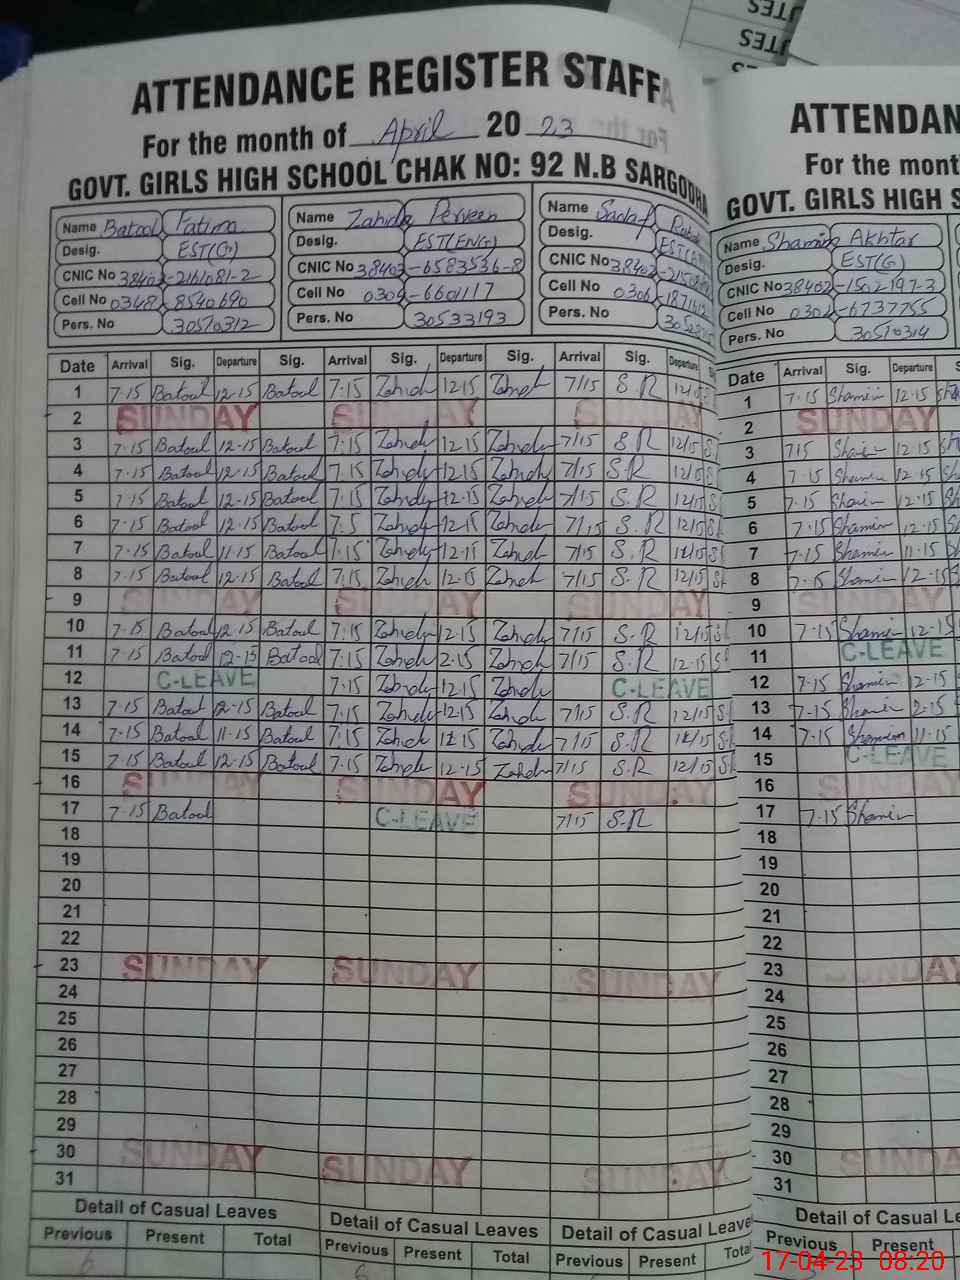 ATTENDANCE REGISTER STAFF
For the month of April 20 23
GOVT. GIRLS HIGH SCHOOL CHAK NO: 92 N.B SARGODHA
Name Batool Fatima
Desig. EST(G)
CNIC No 38403-2161081-2
Cell No 0348-8540690
Pers. No 30570312
Name Zahida Perveen
Desig. EST(ENG)
CNIC No 38403-6583536-8
Cell No 0304-6601117
Pers. No 30533193
Name Sadaf
Desig.
CNIC No 38402
Cell No 0306
Pers. No
Date Arrival Sig. Departure Sig. Arrival Sig. Departure Sig. Arrival Sig. Departure
1 7-15 Batool 12-15 Batool 7:15 Zahida 12-15 Zahida 7/15 S.R 12/15
2 SUNDAY SUNDAY SUNDAY
3 7-15 Batool 12-15 Batool 7:15 Zahida 12-15 Zahida 7/15 S.R 12/15
4 7-15 Batool 12-15 Batool 7:15 Zahida 12-15 Zahida 7/15 S.R 12/15
5 7-15 Batool 12-15 Batool 7:15 Zahida 12-15 Zahida 7/15 S.R 12/15
6 7-15 Batool 12-15 Batool 7:5 Zahida 12-15 Zahida 7/15 S.R 12/15
7 7-15 Batool 11-15 Batool 7:15 Zahida 12-15 Zahida 7/15 S.R 12/15
8 7-15 Batool 12-15 Batool 7:15 Zahida 12-15 Zahida 7/15 S.R 12/15
9 SUNDAY SUNDAY SUNDAY
10 7-15 Batool 12-15 Batool 7:15 Zahida 12-15 Zahida 7/15 S.R 12/15
11 7-15 Batool 12-15 Batool 7:15 Zahida 2-15 Zahida 7/15 S.R 12-15
12 C-LEAVE 7:15 Zahida 12-15 Zahida C-LEAVE
13 7-15 Batool 12-15 Batool 7:15 Zahida 12-15 Zahida 7/15 S.R 12/15
14 7-15 Batool 11-15 Batool 7:15 Zahida 12 15 Zahida 7/15 S.R 12/15
15 7-15 Batool 12-15 Batool 7:15 Zahida 12-15 Zahida 7/15 S.R 12/15
16 SUNDAY SUNDAY SUNDAY
17 7-15 Batool C-LEAVE 7/15 S.R
18
19
20
21
22
23 SUNDAY SUNDAY SUNDAY
24
25
26
27
28
29
30 SUNDAY SUNDAY SUNDAY
31
Detail of Casual Leaves Detail of Casual Leaves Detail of Casual Leave
Previous Present Total Previous Present Total Previous Present Tota
6 6
ATTENDAN
For the mont
GOVT. GIRLS HIGH S
Name Shamim Akhtar
Desig. EST(G)
CNIC No 38402-1502197-3
Cell No 0302-6737755
Pers. No 30570314
Date Arrival Sig. Departure
1 7-15 Shamim 12-15
2 SUNDAY
3 715 Shamim 12-15
4 7-15 Shamim 12-15
5 7-15 Shamim 12-15
6 7-15 Shamim 12-15
7 7-15 Shamim 11-15
8 7-15 Shamim 12-15
9 SUNDAY
10 7-15 Shamim 12-15
11 C-LEAVE
12 7-15 Shamim 12-15
13 7-15 Shamim 2-15
14 7-15 Shamim 11-15
15 C-LEAVE
16 SUNDAY
17 7-15 Shamim
18
19
20
21
22
23 SUNDAY
24
25
26
27
28
29
30 SUNDAY
31
Detail of Casual Le
Previous Present
17-04-23 08:20